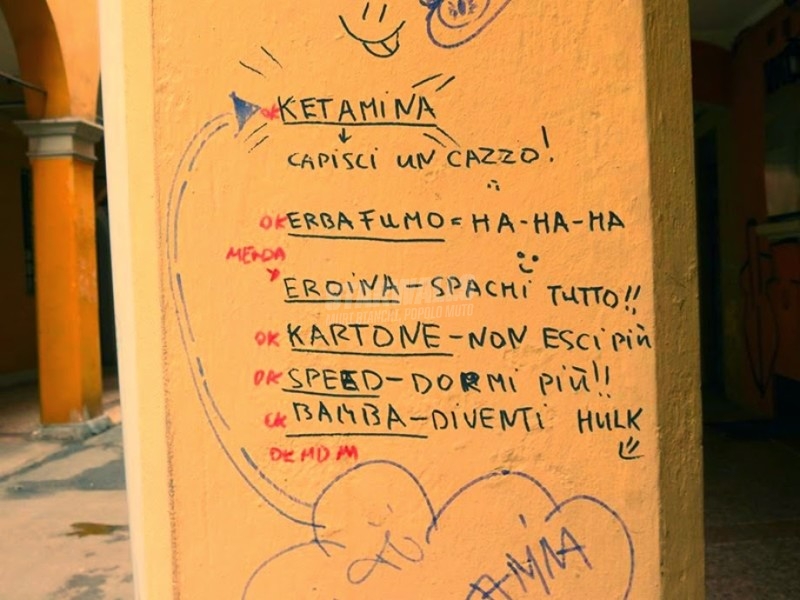 OK KETAMINA
CAPISCI UN CAZZO!
OK ERBA FUMO = HA-HA-HA
MERDA
EROINA - SPACHI TUTTO!!
OK KARTONE - NON ESCI PIÙ
OK SPEED - DORMI PIÙ!!
OK BAMBA - DIVENTI HULK
OK MDMA
MURI BIANCHI, POPOLO MUTO